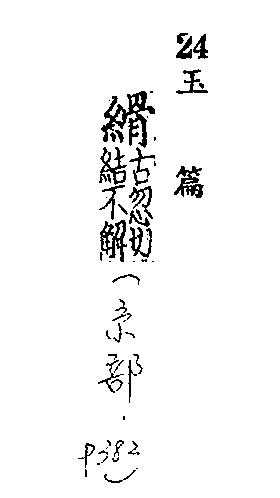 24
玉篇
縎古忽切
結不解
(糸部.
P382)